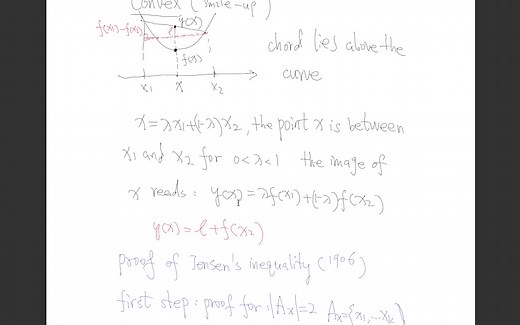 Convex (smile-up)
y(x)
f(x₁)-f(x₂)
l
f(x)
chord lies above the
curve
x₁ x x₂
x=λx₁+(1-λ)x₂, the point x is between
x₁ and x₂ for 0<λ<1 the image of
x reads: y(x)=λf(x₁)+(1-λ)f(x₂)
y(x)=l+f(x₂)
proof of Jensen's inequality (1906)
first step: proof for |Aₓ|=2 Aₓ={x₁,...xₖ}